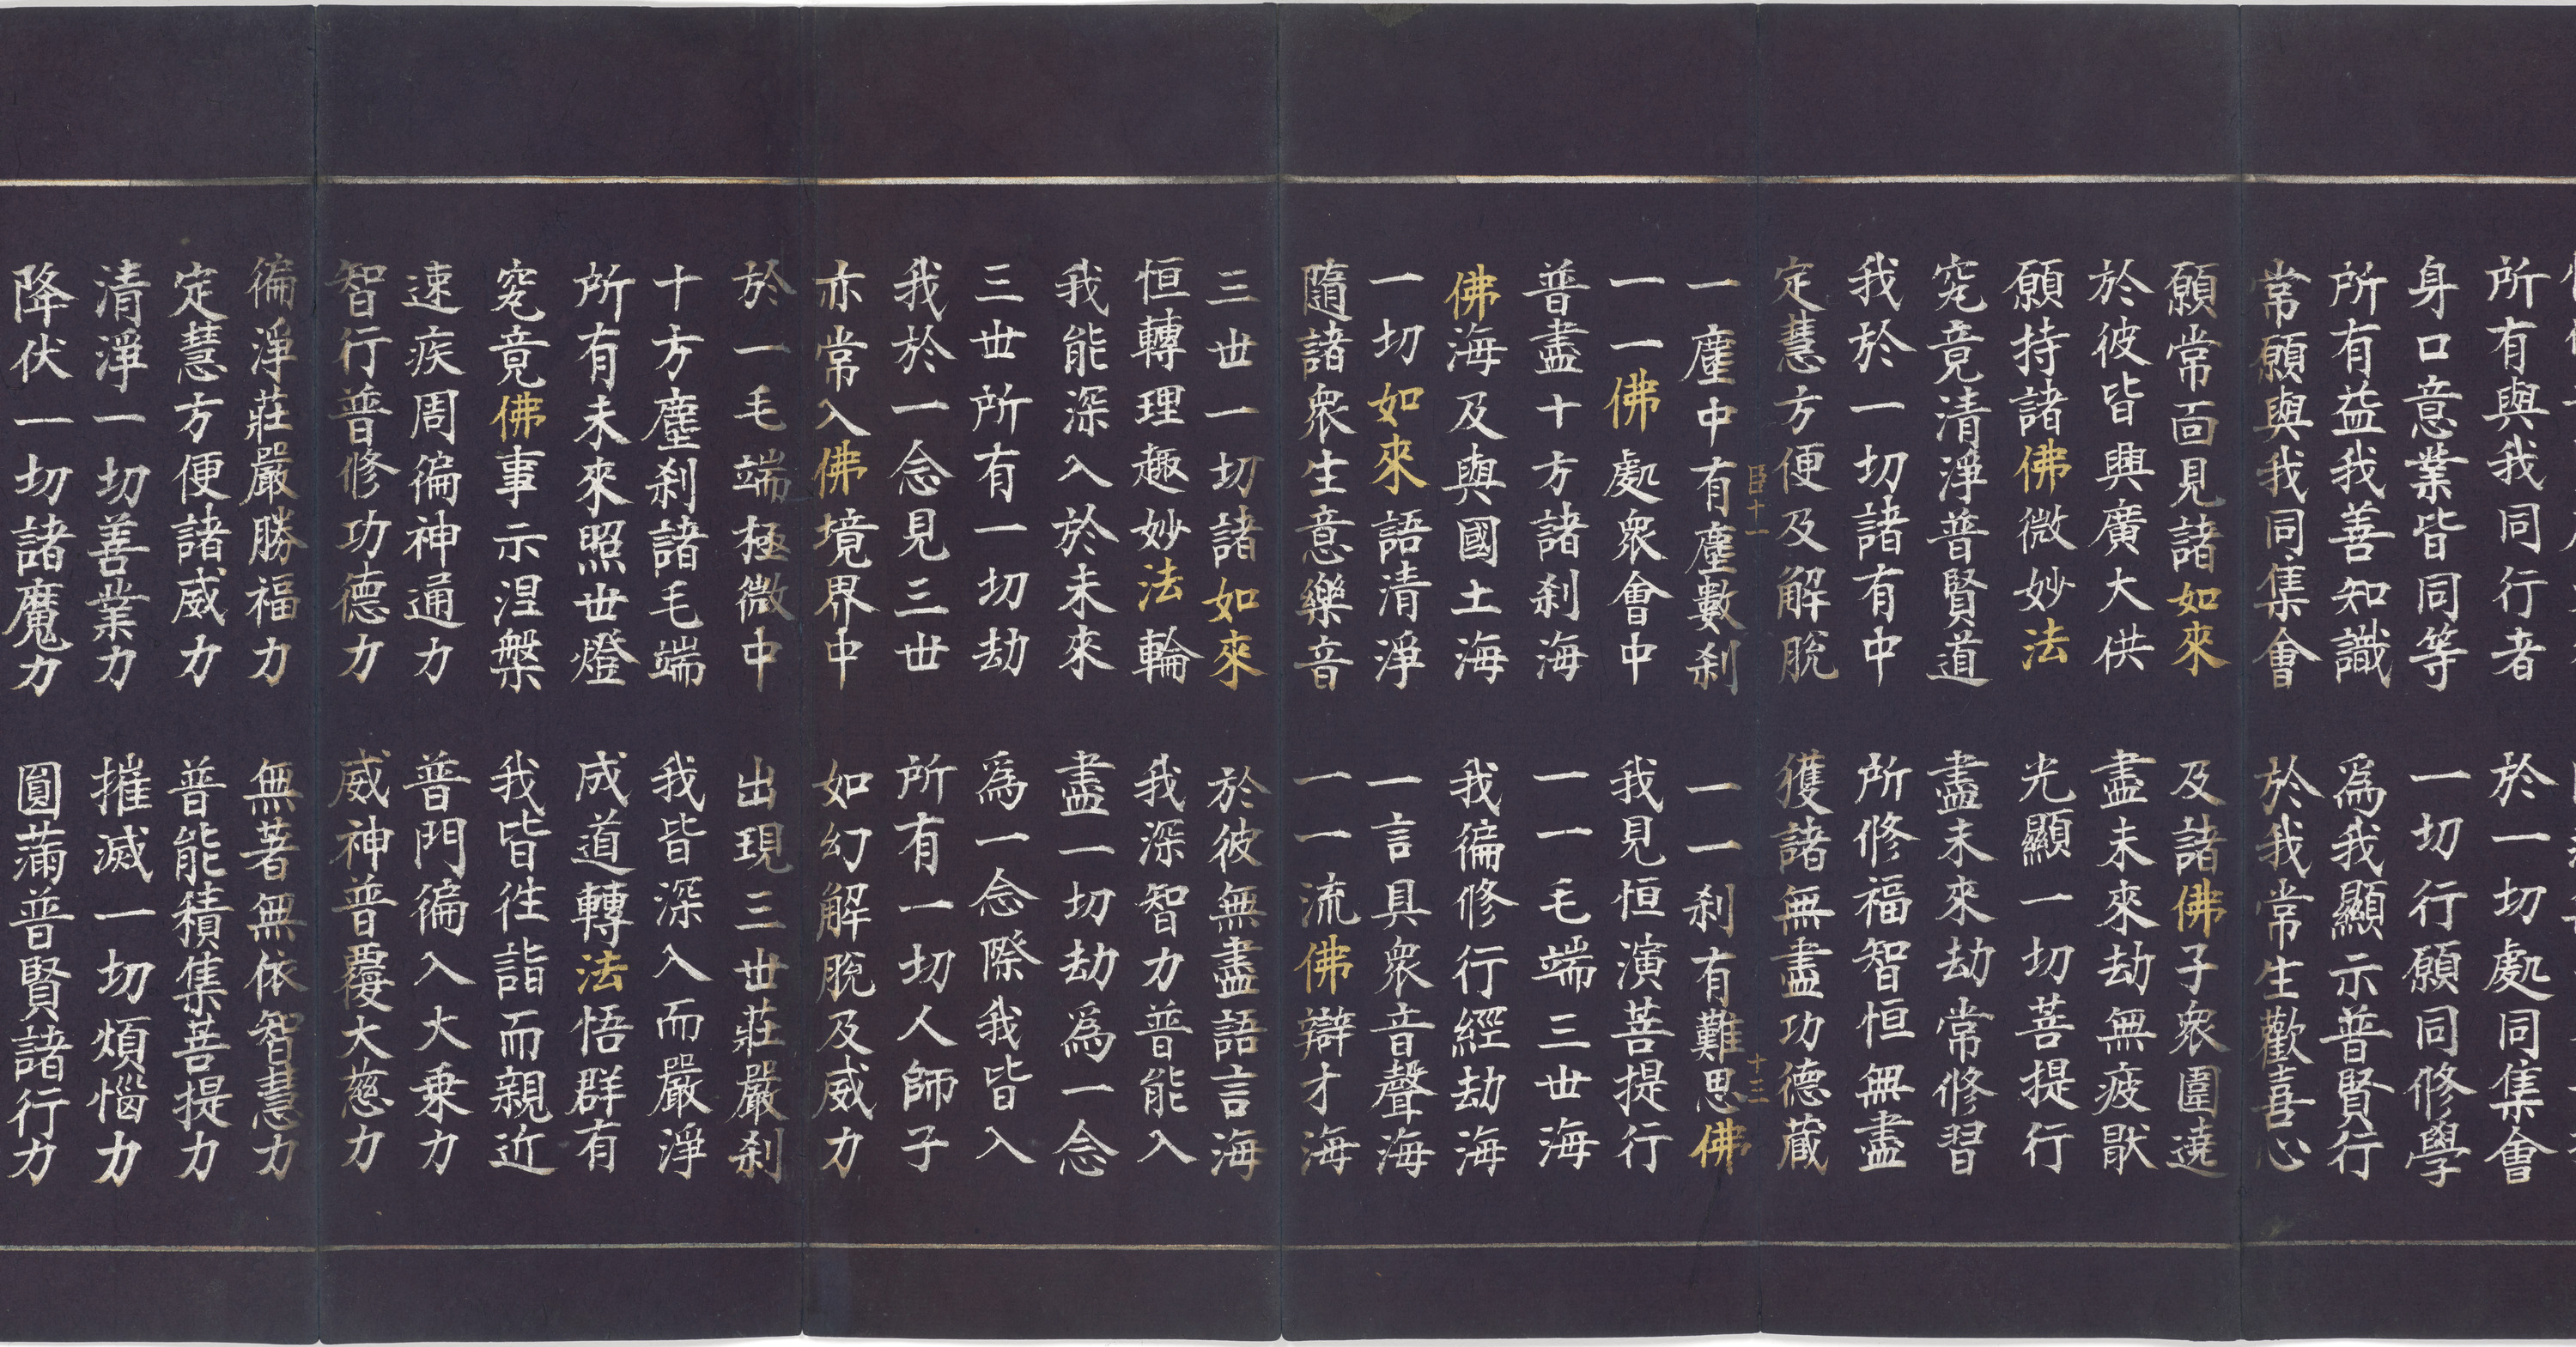 所有與我同行者　於一切處同集會
身口意業皆同等　一切行願同修學
所有益我善知識　爲我顯示普賢行
常願與我同集會　於我常生歡喜心
願常面見諸如來　及諸佛子衆圍遶
於彼皆興廣大供　盡未來劫無疲猒
願持諸佛微妙法　光顯一切菩提行
究竟清淨普賢道　盡未來劫常修習
我於一切諸有中　所修福智恒無盡
定慧方便及解脫　獲諸無盡功德藏
臣十一　十三
一塵中有塵數刹　一一刹有難思佛
一一佛處衆會中　我見恒演菩提行
普盡十方諸刹海　一一毛端三世海
佛海及與國土海　我徧修行經劫海
一切如來語清淨　一言具衆音聲海
隨諸衆生意樂音　一一流佛辯才海
三世一切諸如來　於彼無盡語言海
恒轉理趣妙法輪　我深智力普能入
我能深入於未來　盡一切劫爲一念
三世所有一切劫　爲一念際我皆入
我於一念見三世　所有一切人師子
亦常入佛境界中　如幻解脫及威力
於一毛端極微中　出現三世莊嚴刹
十方塵刹諸毛端　我皆深入而嚴淨
所有未來照世燈　成道轉法悟群有
究竟佛事示涅槃　我皆往詣而親近
速疾周徧神通力　普門徧入大乗力
智行普修功德力　威神普覆大慈力
徧淨莊嚴勝福力　無著無依智慧力
定慧方便諸威力　普能積集菩提力
清淨一切善業力　摧滅一切煩惱力
降伏一切諸魔力　圓滿普賢諸行力